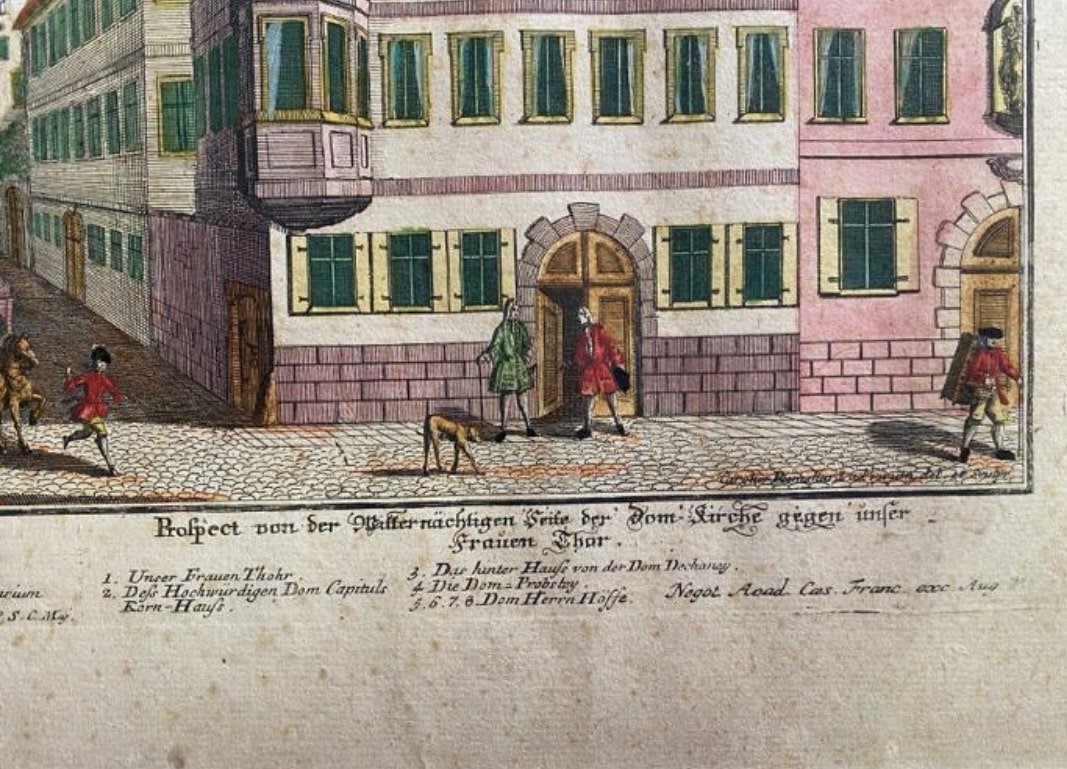 Prospect von der Mitternächtigen Seite der Dom-Kirche gegen unser
Frauen Thor.
1. Unser Frauen Thohr
2. Deß Hochwurdigen Dom Capituls
Korn-Hauß.
3. Das hinter Hauß von der Dom Dechaney.
4 Die Dom=Probstey.
5. 6. 7. 8. Dom Herrn Höffe.
Negot Acad. Cæs. Franc. exc Aug
arium
S. C. Maj.